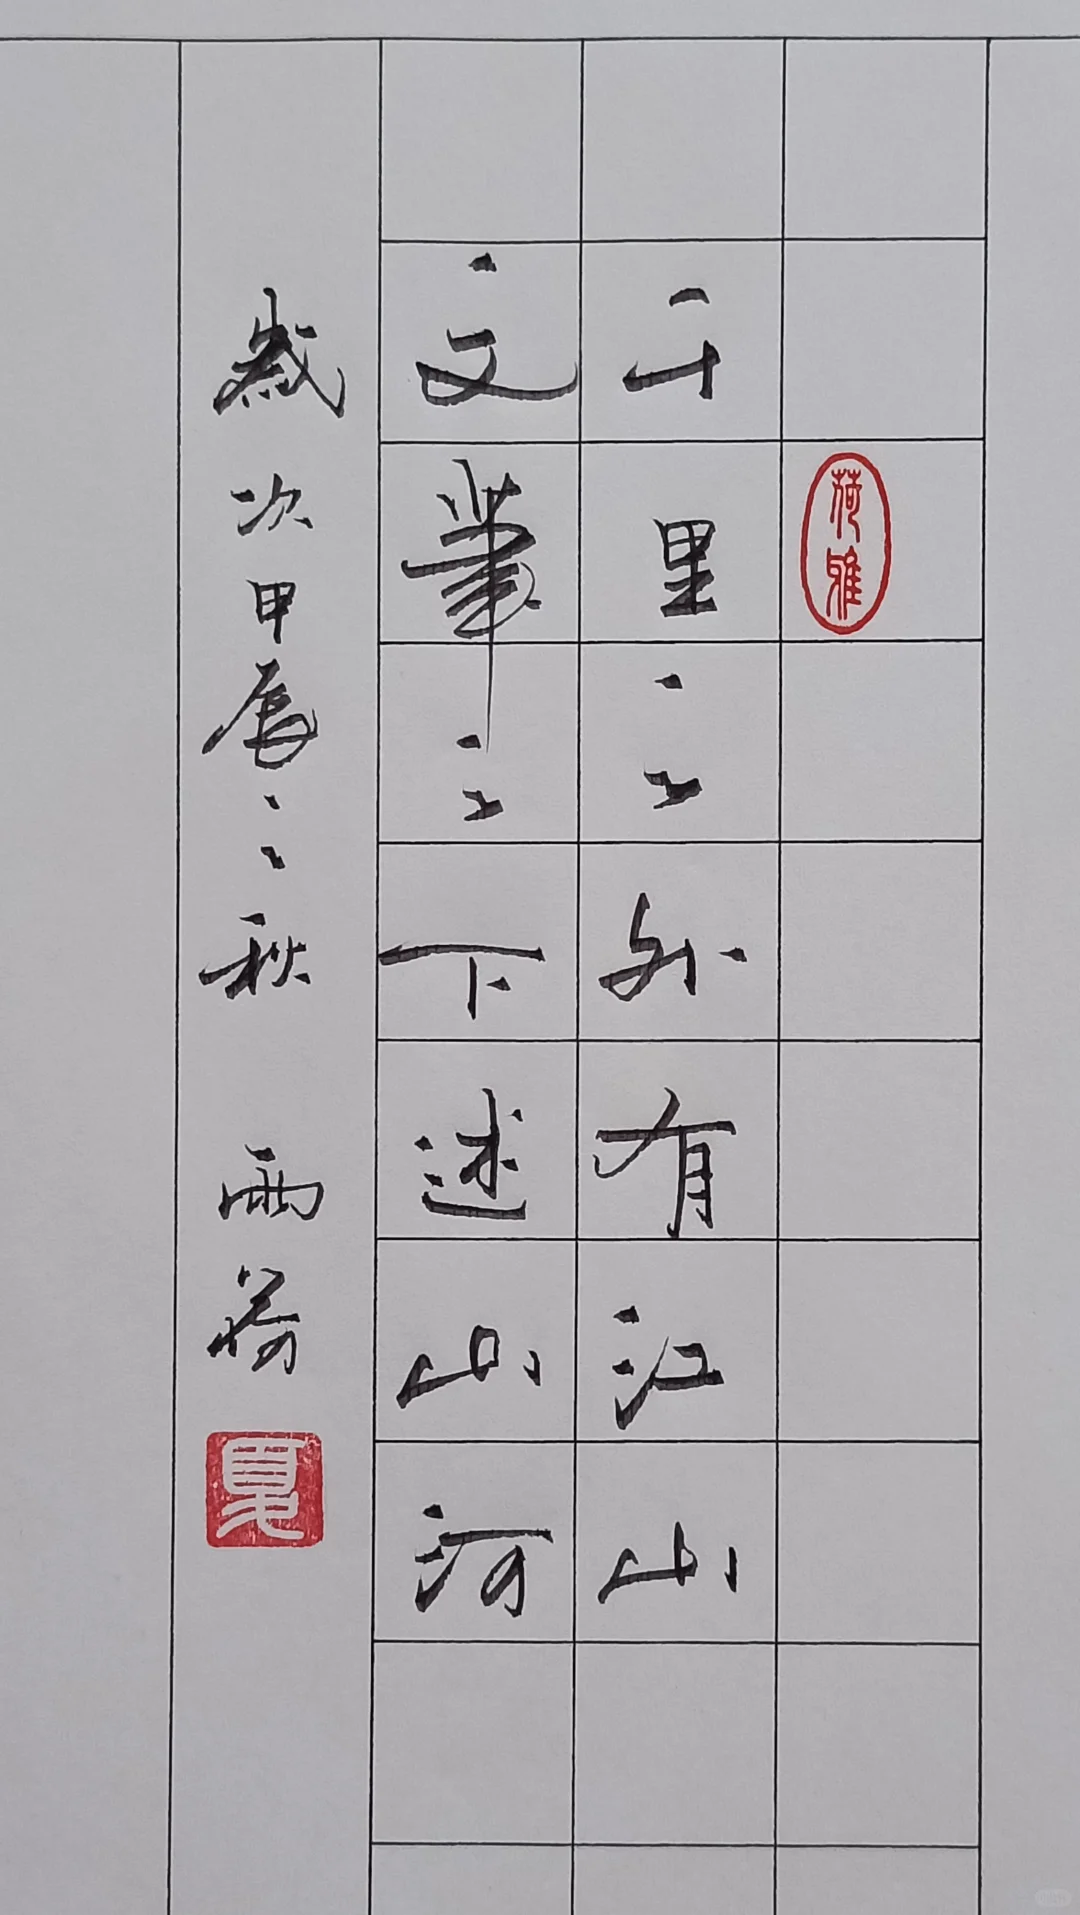 荷雅
千里之外有江山
文笔之下述山河
岁次甲辰之秋 雨荷
夏